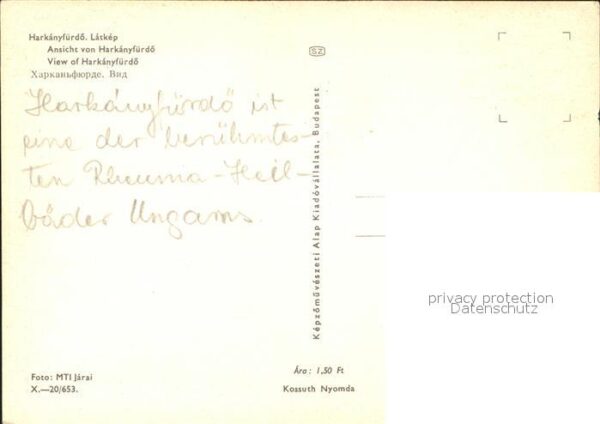 Harkányfürdő. Látkép
Ansicht von Harkányfürdő
View of Harkányfürdő
Харканьфюрде. Вид
SZ
Harkányfürdő ist
eine der berühmtes-
ten Rheuma-Heil-
bäder Ungarns.
Képzőművészeti Alap Kiadóvállalata, Budapest
privacy protection
Datenschutz
Foto: MTI Járai
X.—20/653.
Ára: 1,50 Ft
Kossuth Nyomda